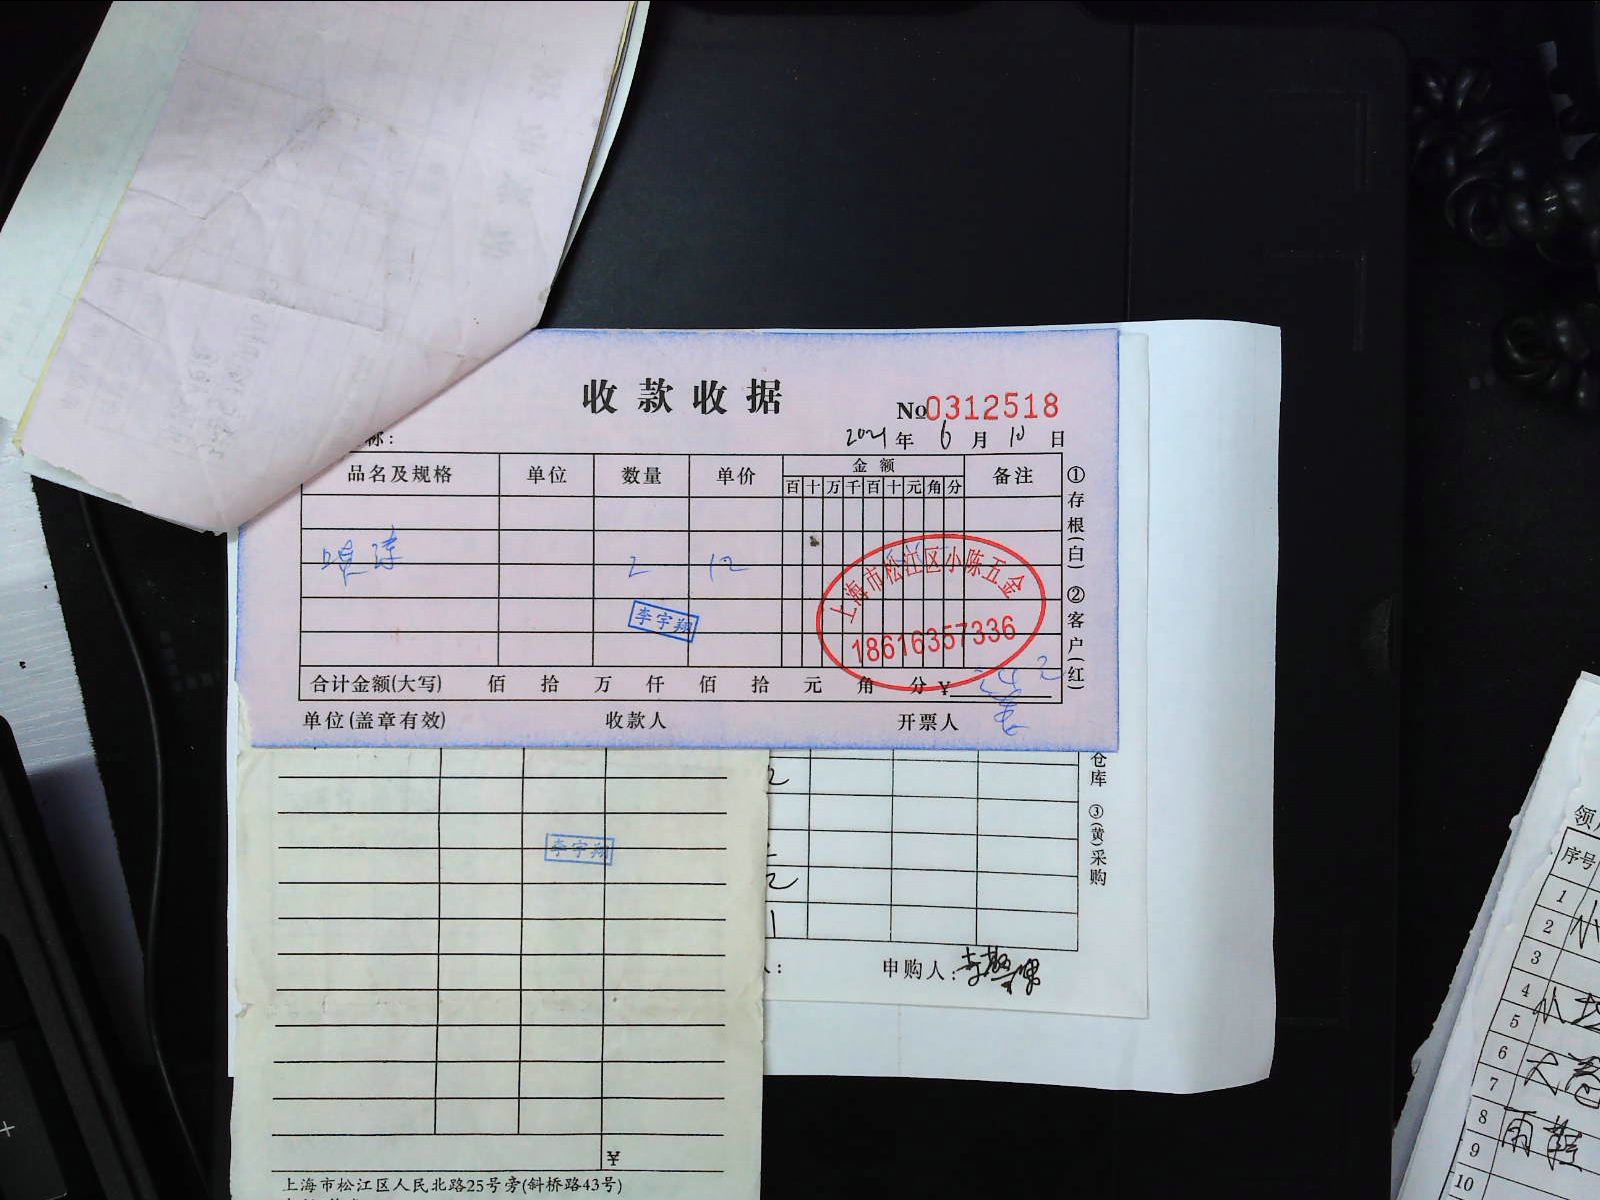 收款收据
№0312518
称:
2021年6月10日
品名及规格 单位 数量 单价 金额 备注
百十万千百十元角分
2 12
李宇翔
上海市松江区小陈五金
18616357336
合计金额(大写) 佰 拾 万 仟 佰 拾 元 角 分 ¥ 24
单位(盖章有效) 收款人 开票人
①存根(白) ②客户(红)
仓库 ③(黄)采购
2
李宇翔
2
1
申购人:
¥
上海市松江区人民北路25号旁(斜桥路43号)
领
序号
1
2 小
3
4 小
5
6 大卷
7
8 雨鞋
9
10